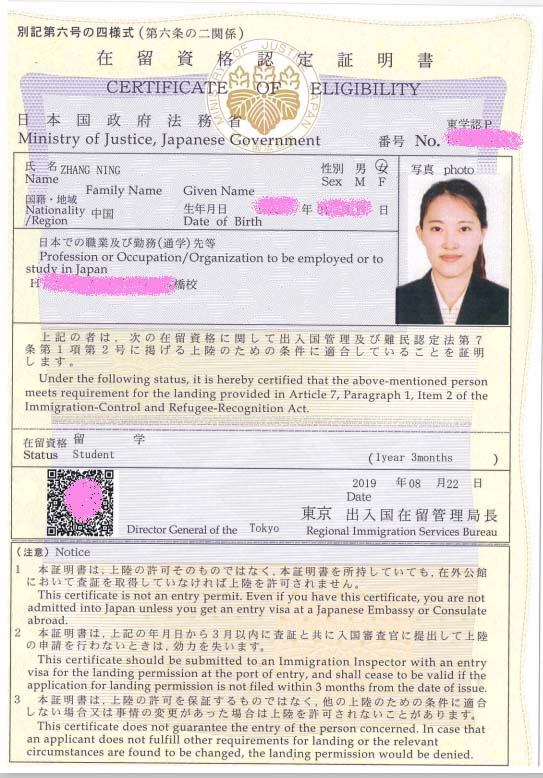 別記第六号の四様式（第六条の二関係）
在留資格認定証明書
CERTIFICATE OF ELIGIBILITY
MINISTRY OF JUSTICE JAPAN
日本国政府法務省
東学認P
Ministry of Justice, Japanese Government 番号 No.
氏名 ZHANG NING 性別 男 女 写真 photo
Name Family Name Given Name Sex M F
国籍・地域 生年月日 年 日
Nationality 中国 Date of Birth
/Region
日本での職業及び勤務（通学）先等
Profession or Occupation/Organization to be employed or to
study in Japan
橋校
上記の者は、次の在留資格に関して出入国管理及び難民認定法第7
条第1項第2号に掲げる上陸のための条件に適合していることを証明
します。
Under the following status, it is hereby certified that the above-mentioned person
meets requirement for the landing provided in Article 7, Paragraph 1, Item 2 of the
Immigration-Control and Refugee-Recognition Act.
在留資格 留 学
Status Student (1year 3months )
2019 年 08 月 22 日
Date
東京 出入国在留管理局長
Director General of the Tokyo Regional Immigration Services Bureau
（注意）Notice
1 本証明書は、上陸の許可そのものではなく、本証明書を所持していても、在外公館
において査証を取得していなければ上陸を許可されません。
This certificate is not an entry permit. Even if you have this certificate, you are not
admitted into Japan unless you get an entry visa at a Japanese Embassy or Consulate
abroad.
2 本証明書は、上記の年月日から3月以内に査証と共に入国審査官に提出して上陸
の申請を行わないときは、効力を失います。
This certificate should be submitted to an Immigration Inspector with an entry
visa for the landing permission at the port of entry, and shall cease to be valid if the
application for landing permission is not filed within 3 months from the date of issue.
3 本証明書は、上陸の許可を保証するものではなく、他の上陸のための条件に適合
しない場合又は事情の変更があった場合は上陸を許可されないことがあります。
This certificate does not guarantee the entry of the person concerned. In case that
an applicant does not fulfill other requirements for landing or the relevant
circumstances are found to be changed, the landing permission would be denied.